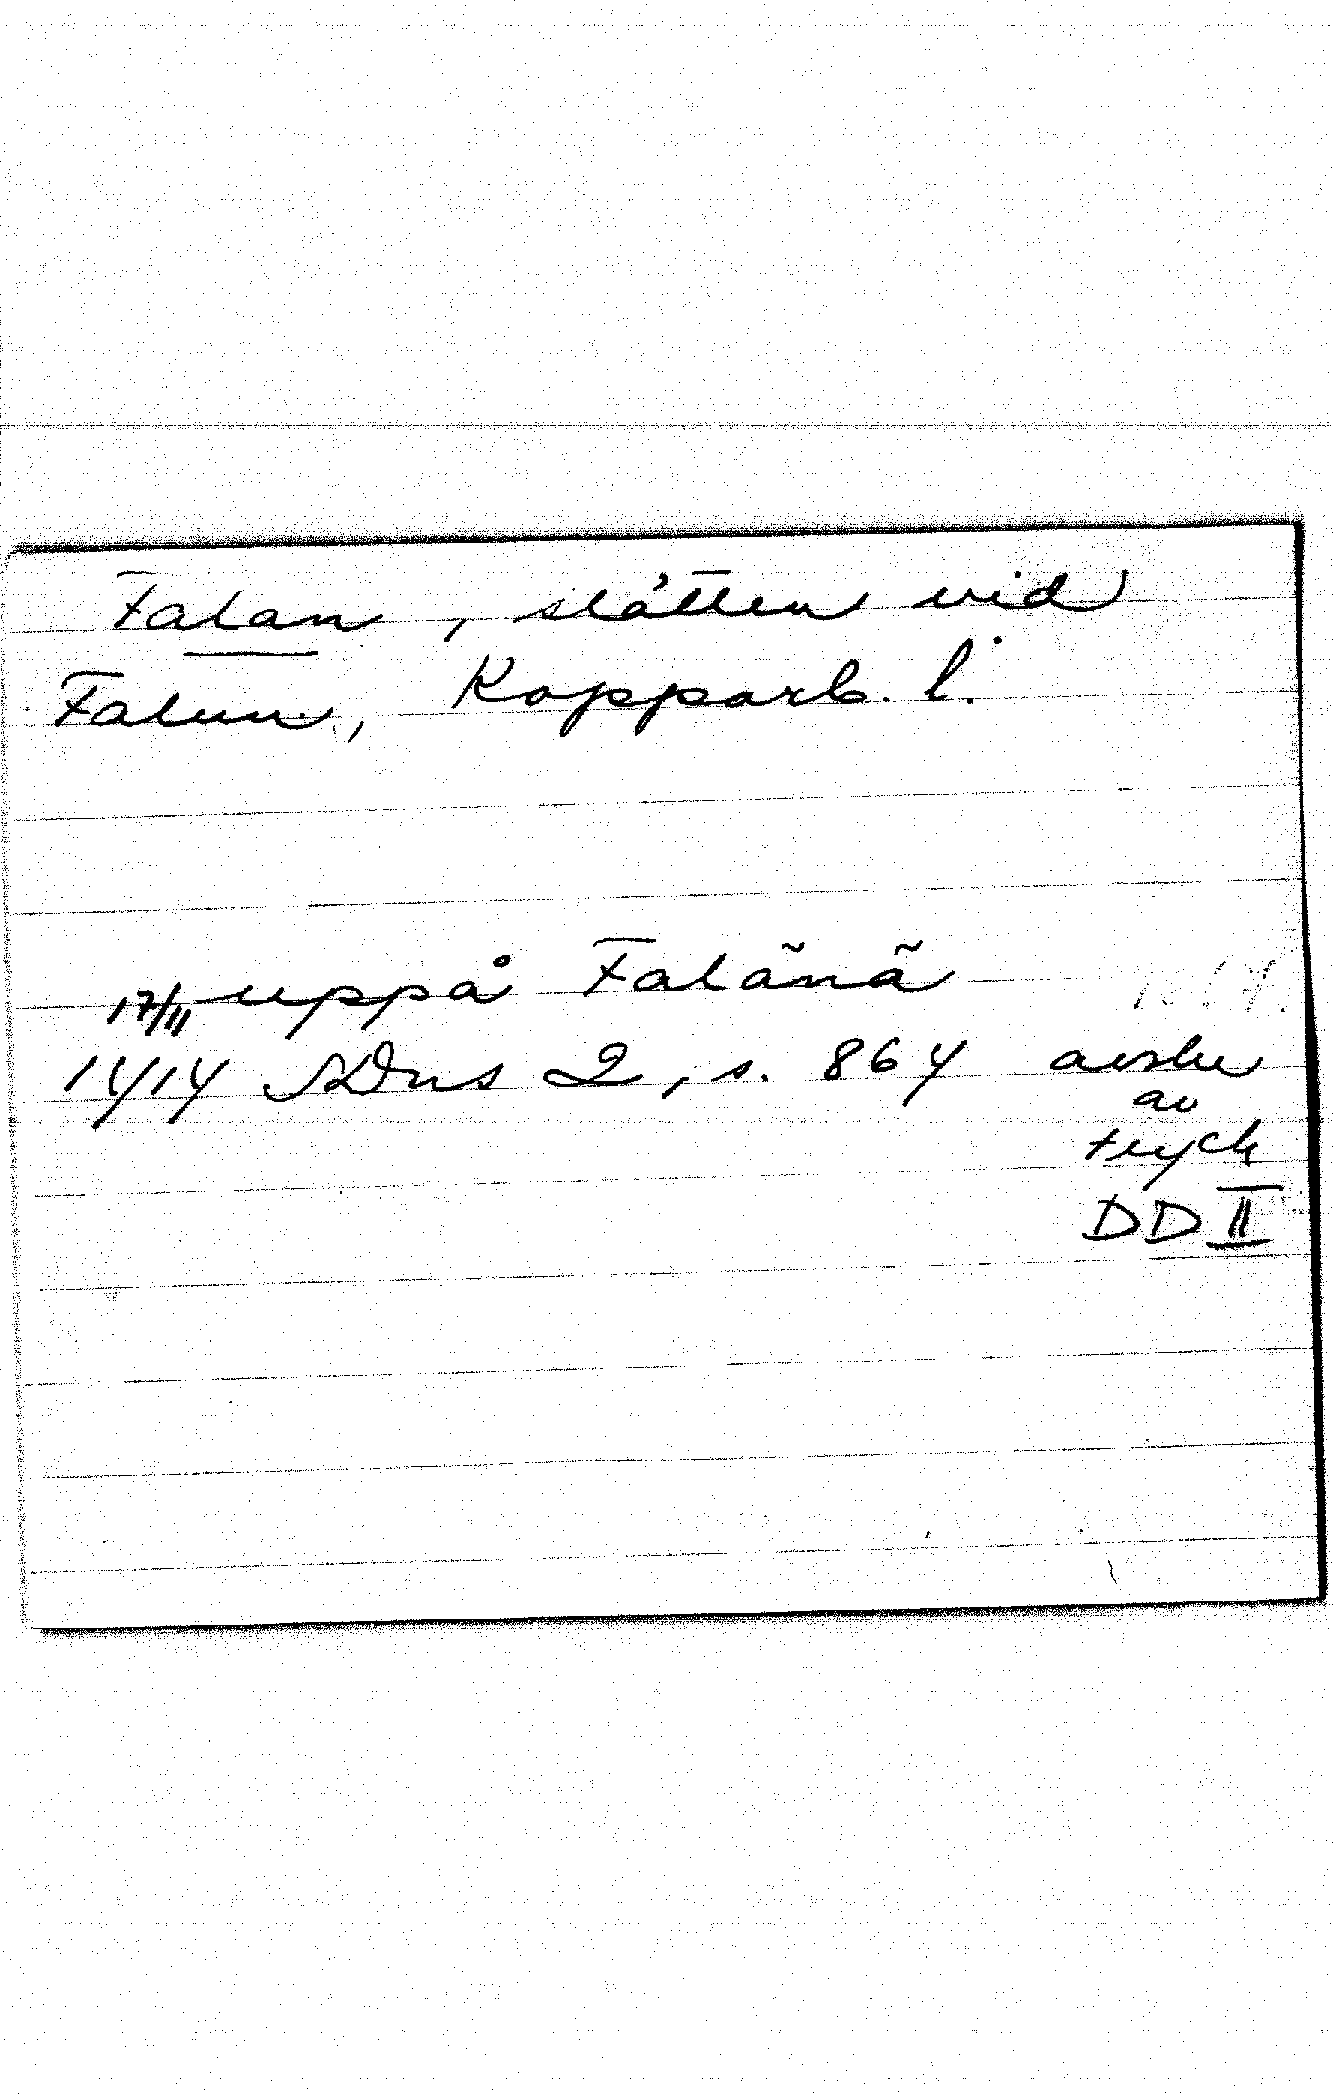 Falan, slätten vid
Falun, Kopparb. l.
17/III uppå Falãnã
1414 SDns 2, s. 864 avskr
av
tryck
DD II